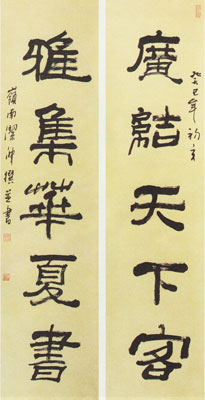 癸巳年初
廣結天下客
雅集華夏書
嶺南潔仲撰並書